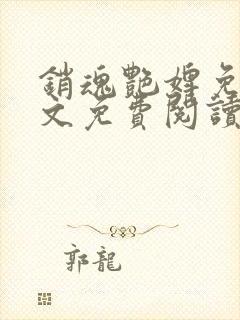 銷魂艷婢免
文免費閱讀
郭龍